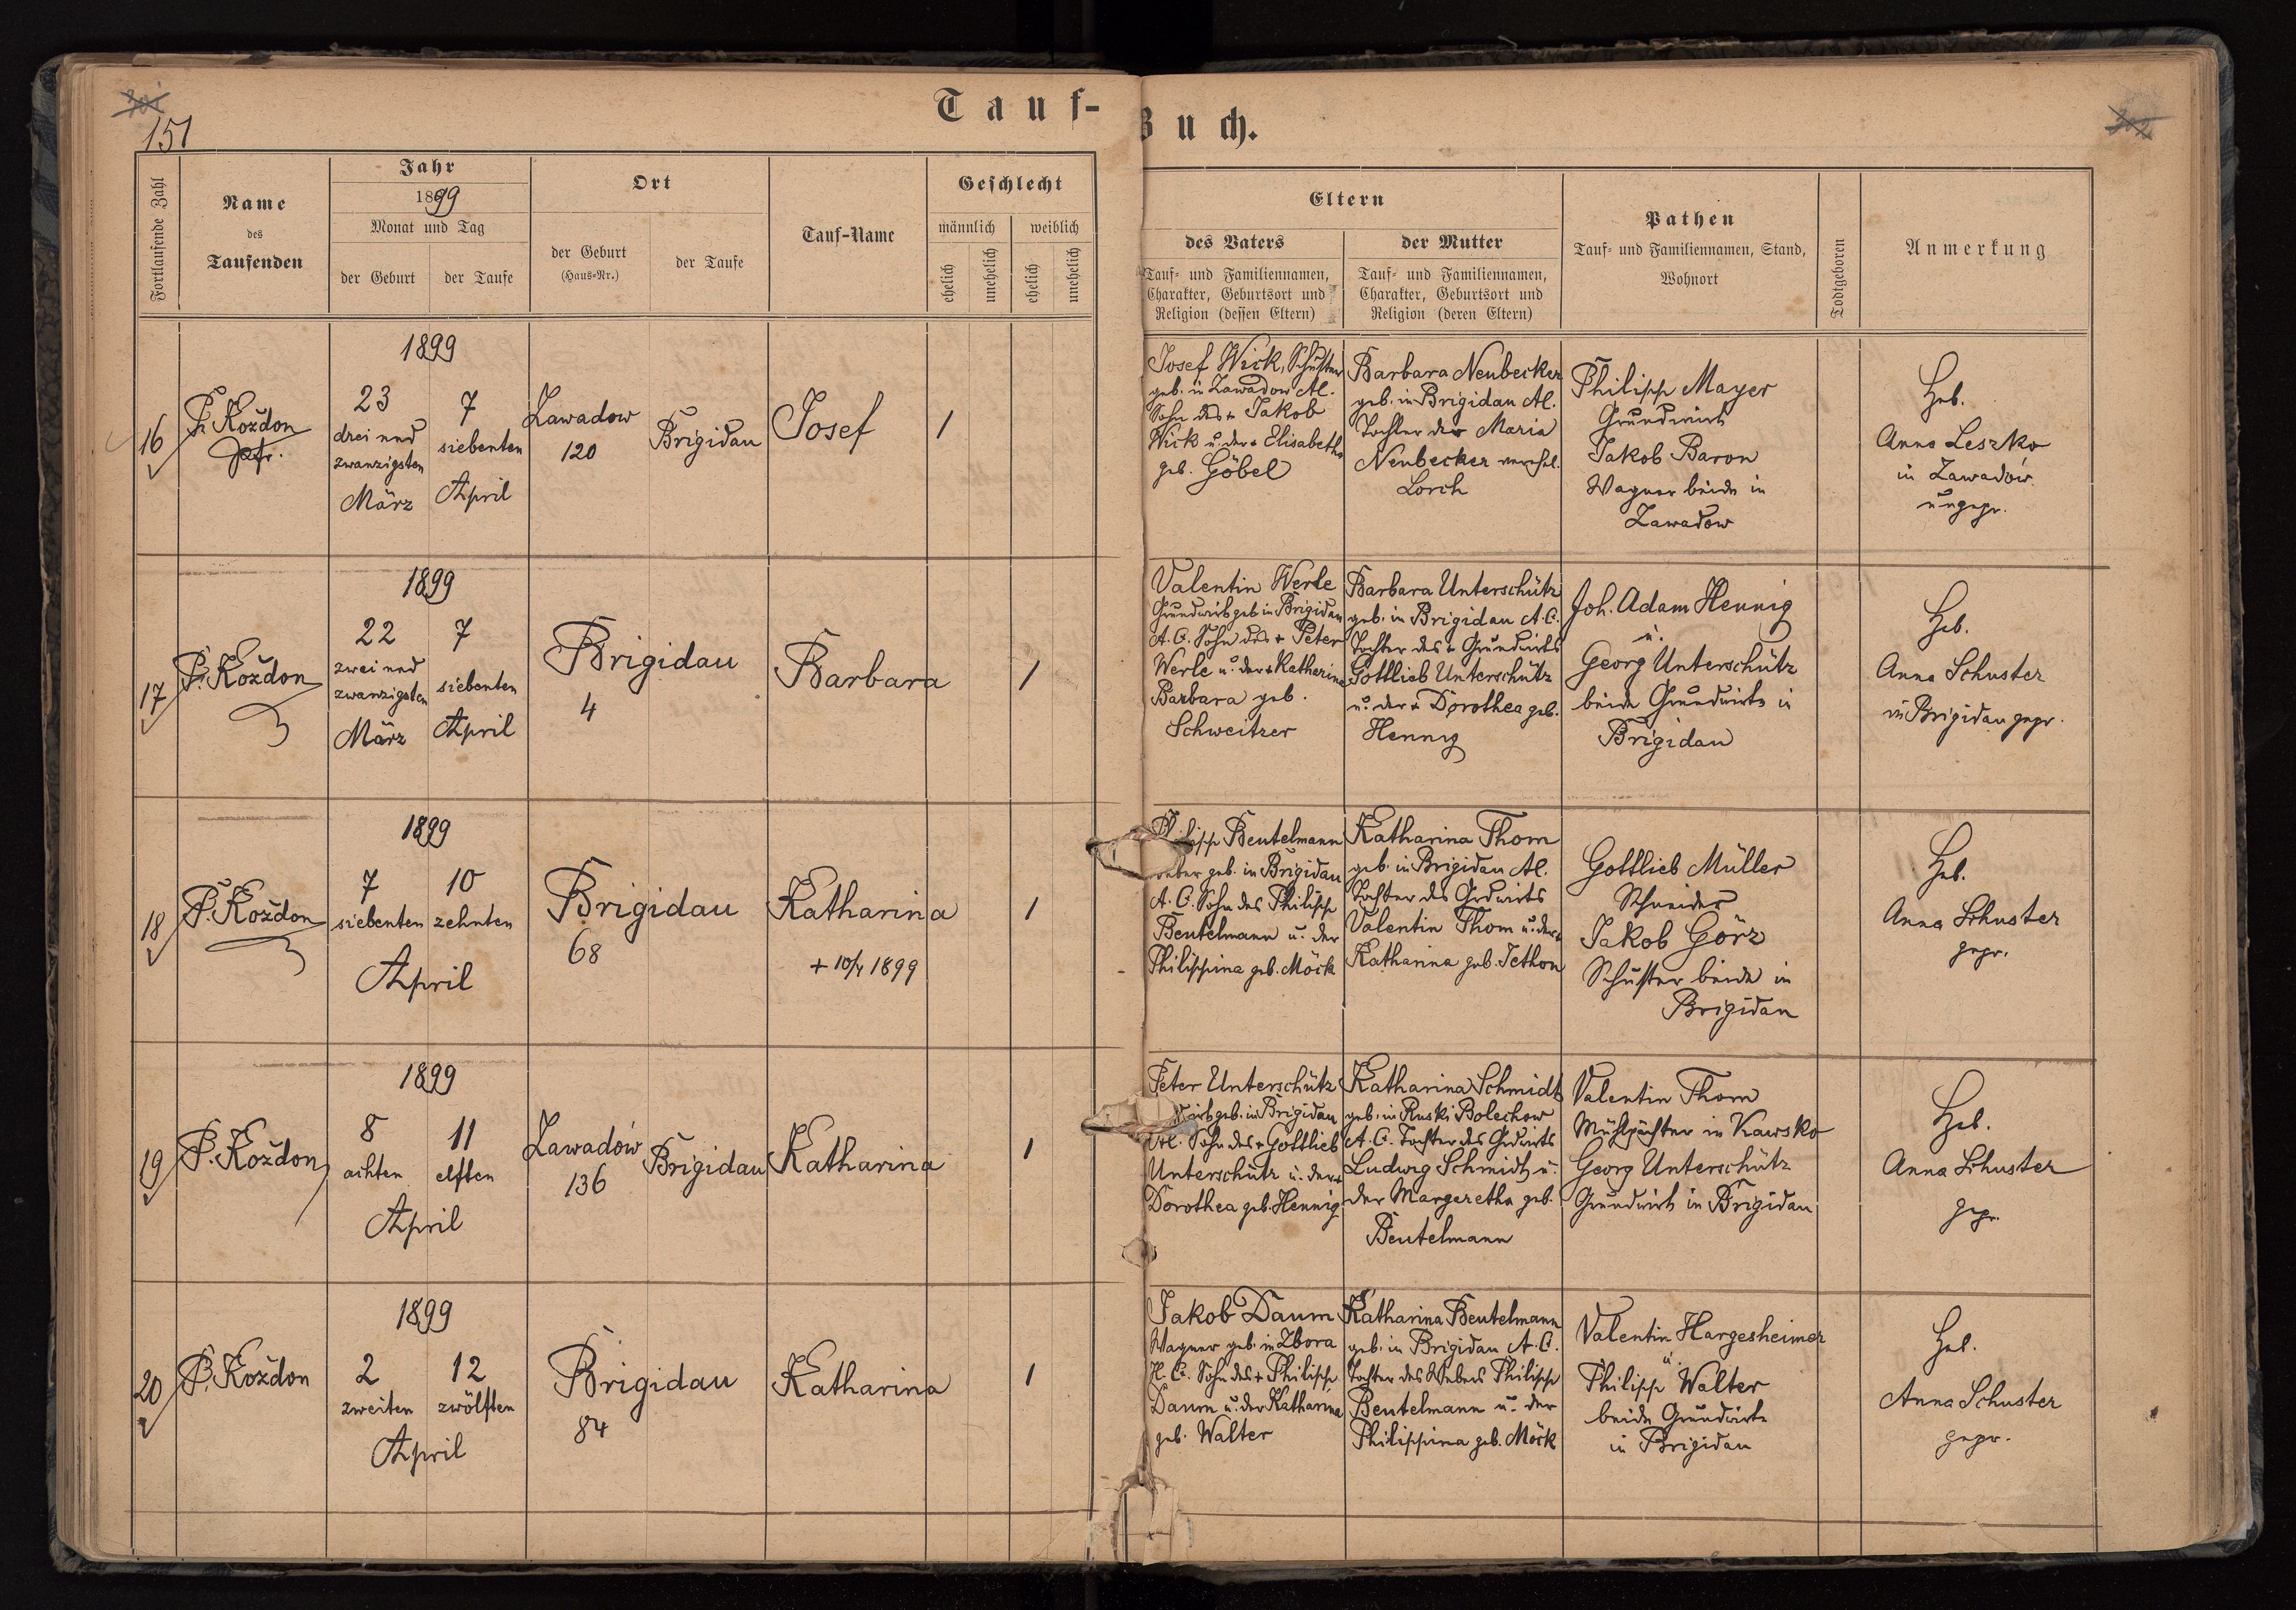 151
Tauf-
Buch.
Fortlaufende Zahl
Name
des
Taufenden
Jahr
1899
Monat und Tag
der Geburt
der Taufe
Ort
der Geburt
(Haus-Nr.)
der Taufe
Tauf-Name
Geschlecht
männlich
weiblich
ehelich
unehelich
ehelich
unehelich
Eltern
des Vaters
Tauf- und Familiennamen,
Charakter, Geburtsort und
Religion (dessen Eltern)
der Mutter
Tauf- und Familiennamen,
Charakter, Geburtsort und
Religion (deren Eltern)
Pathen
Tauf- und Familiennamen, Stand,
Wohnort
Todtgeboren
Anmerkung
16
P. Koždon
1899
23
drei und
zwanzigsten
März
7
siebenten
April
Zawadow
120
Brigidau
Josef
1
Josef Wick, Schuster
geb. in Zawadow
Sohn des + Jakob
Wick u. der + Elisabetha
geb. Göbel
Barbara Neubecker
geb. in Brigidau
Tochter der Maria
Neubecker verehel.
Lorch
Philipp Mayer
Grundwirth
Jakob Baron
Wagner beide in
Zawadow
Heb.
Anna Leszko
in Zawadów
ungepr.
17
P. Koždon
1899
22
zwei und
zwanzigsten
März
7
siebenten
April
Brigidau
4
Barbara
1
Valentin Werle
Grundwirth geb. in Brigidau
A. C. Sohn des + Peter
Werle u. der + Katharina
Barbara geb.
Schweitzer
Barbara Unterschütz
geb. in Brigidau A. C.
Tochter des + Grundwirts
Gottlieb Unterschütz
u. der + Dorothea geb.
Hennig
Joh. Adam Hennig
u.
Georg Unterschütz
beide Grundwirte in
Brigidau
Heb.
Anna Schuster
in Brigidau gepr.
18
P. Koždon
1899
7
siebenten
10
zehnten
April
Brigidau
68
Katharina
+ 10/4 1899
1
Philipp Beutelmann
geb. in Brigidau
A. C. Sohn des Philipp
Beutelmann u. der
Philippina geb. Möck
Katharina Thom
geb. in Brigidau
Tochter des Grdwirts
Valentin Thom u. der +
Katharina geb. Jethon
Gottlieb Müller
Schneider
Jakob Görz
Schuster beide in
Brigidau
Heb.
Anna Schuster
gepr.
19
P. Koždon
1899
8
achten
11
elften
April
Zawadów
136
Brigidau
Katharina
1
Peter Unterschütz
geb. in Brigidau
Sohn des + Gottlieb
Unterschütz u. der +
Dorothea geb. Hennig
Katharina Schmidt
geb. in Ruski Bolechow
A. C. Tochter des Grdwirts
Ludwig Schmidt u.
der Margaretha geb.
Beutelmann
Valentin Thom
Mühlpächter in Kawsko
Georg Unterschütz
Grundwirth in Brigidau
Heb.
Anna Schuster
gepr.
20
P. Koždon
1899
2
zweiten
12
zwölften
April
Brigidau
84
Katharina
1
Jakob Daum
Wagner geb. in Zbora
H. C. Sohn des + Philipp
Daum u. der Katharina
geb. Walter
Katharina Beutelmann
geb. in Brigidau A. C.
Tochter des Webers Philipp
Beutelmann u. der
Philippina geb. Möck
Valentin Hargesheimer
u.
Philipp Walter
beide Grundwirte
in Brigidau
Heb.
Anna Schuster
gepr.